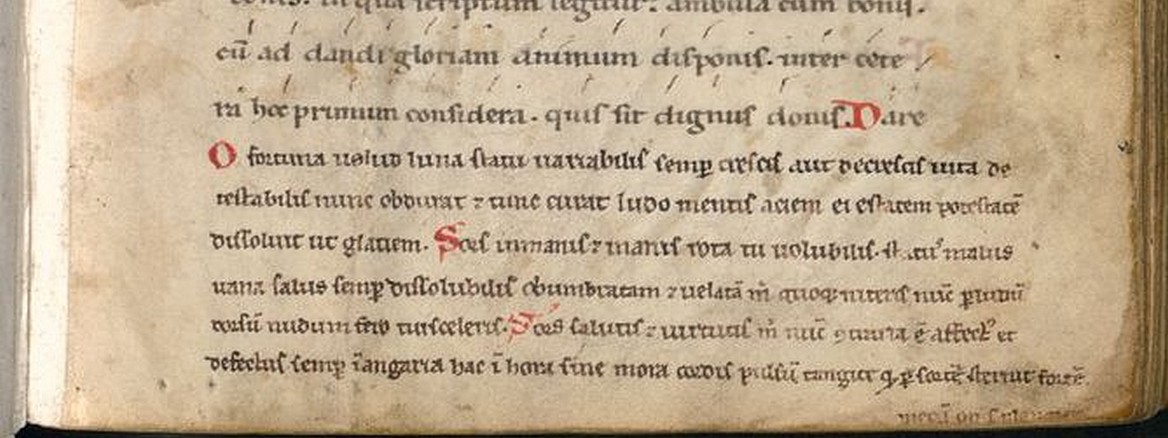 in qua scriptum legitur: ambula cum boniſ.
cū ad dandi gloriam animum diſponiſ. inter cete
ra hoc primum conſidera. quiſ ſit dignuſ doniſ. Dare
O fortuna uelud luna ſtatu uariabiliſ ſemꝑ creſciſ aut decreſciſ uita de
teſtabiliſ nunc obdurat ⁊ tunc curat ludo mentiſ aciem egeſtatem poteſtatē
diſſoluit ut glaciem. Sorſ inmaniſ ⁊ inaniſ rota tu uolubiliſ. ſtatuſ maluſ
uana ſaluſ ſemꝑ diſſolubiliſ obumbratam ⁊ uelatā m̄ quoqꝫ niteriſ nūc ꝑ ludū
dorſū nudum fero tui ſceleriſ. Sorſ ſalutiſ ⁊ uirtutiſ m̄ nūc ꝯtraria ē affectꝰ et
defectuſ ſemꝑ ī angaria hac ī hora ſine mora cordiſ pulſū tangite ꝗ ꝑ ſortē ſternit fortē